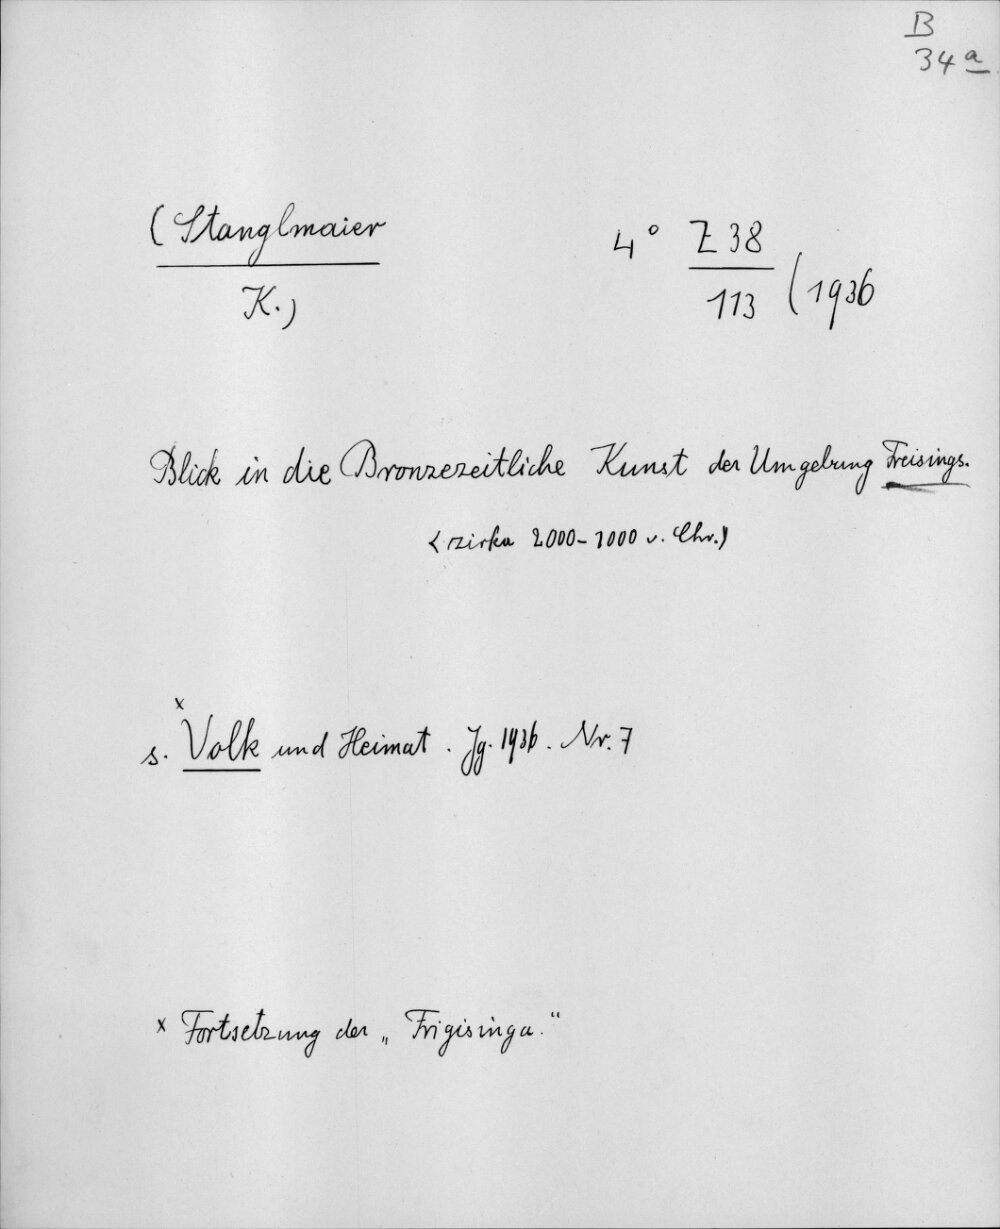 B
34 a
(Stanglmaier
K.)
4° Z 38
113 (1936
Blick in die Bronzezeitliche Kunst der Umgebung Freisings.
(zirka 2000-1000 v. Chr.)
x
s. Volk und Heimat. Jg. 1936. Nr. 7
x Fortsetzung der „Frigisinga."